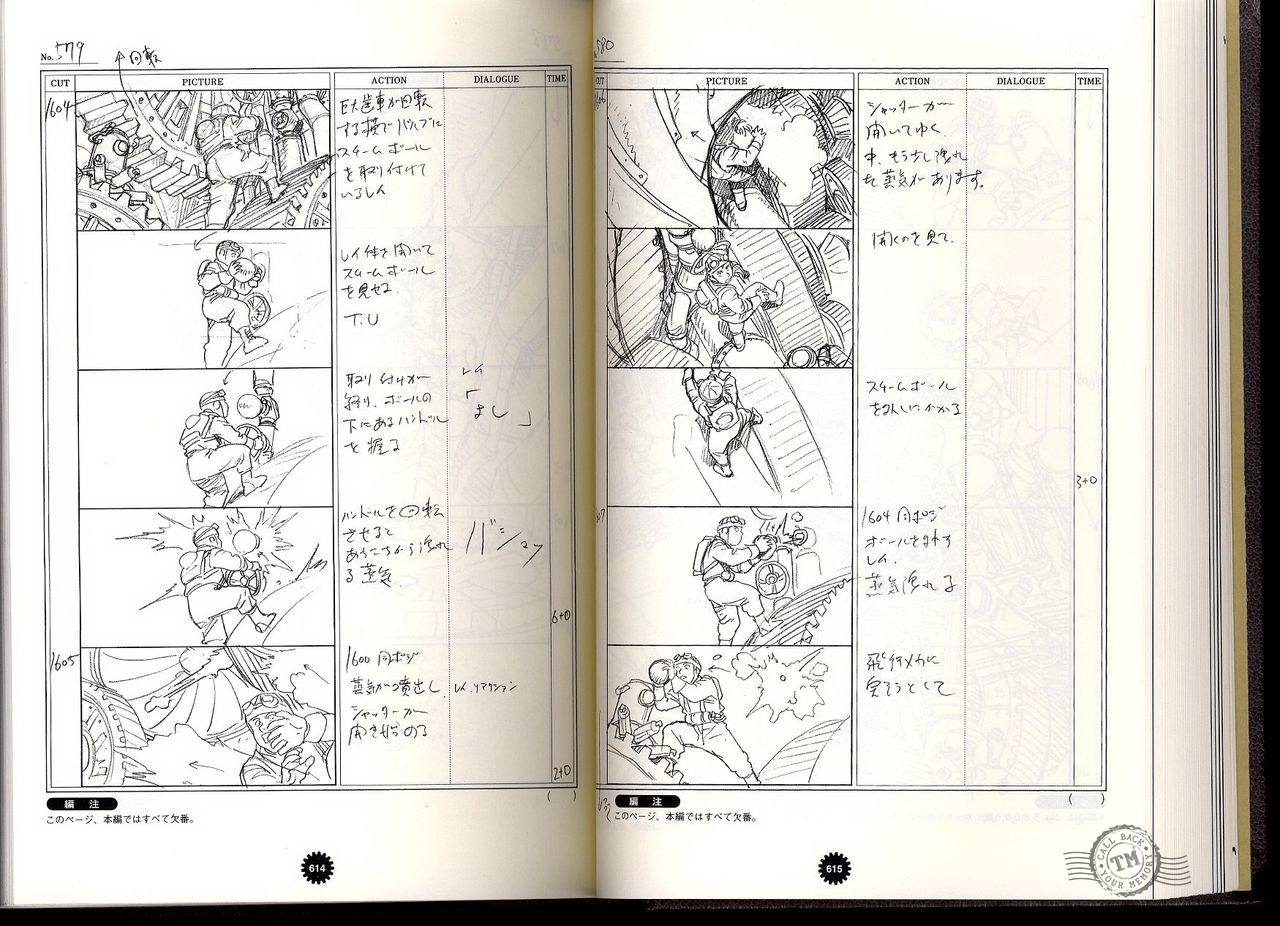 No. 579
↑回転
CUT PICTURE ACTION DIALOGUE TIME
1604
巨大歯車が回転
する横でバルブに
スチームボール
を取り付けて
いるレイ
レイ体を開いて
スチームボール
を見せる
T.U
取り付けが
終り、ボールの
下にあるハンドル
を握る
レイ
「
よし
」
ハンドルを回転
させると
あちこちから洩れ
る蒸気
バシュッ
6+0
1605
1600 同ポジ
蒸気がつ噴出し
シャッターが
開き始める
レイ、リアクション
2+0
( )
編 注
このページ、本編ではすべて欠番。
614
580
PICTURE ACTION DIALOGUE TIME
シャッターが
開いてゆく
中、もう少し洩れ
た蒸気があります。
開くのを見て、
スチームボール
をはずしにかかる
3+0
1604 同ポジ
ボールを外す
レイ、
蒸気洩れる
飛行メカに
戻ろうとして
( )
編 注
このページ、本編ではすべて欠番。
615
CALL BACK
TM
YOUR MEMORY